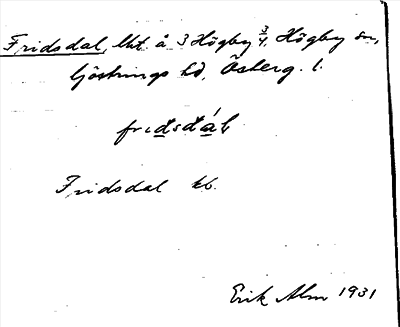 Fridsdal, lht å 3 Högby 3/4, Högby sn,
Göstrings hd, Österg. l.
fridsdál
Fridsdal kb.
Erik Alm 1931